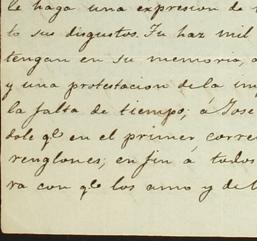 le haga una expresion de
to sus disgustos. Tu haz mil
tengan en su memoria, a
y una protestacion de la im
la falta de tiempo; á Jose
dole qe en el primer corre
renglones; en fin á todos
ra con qe los amo y de